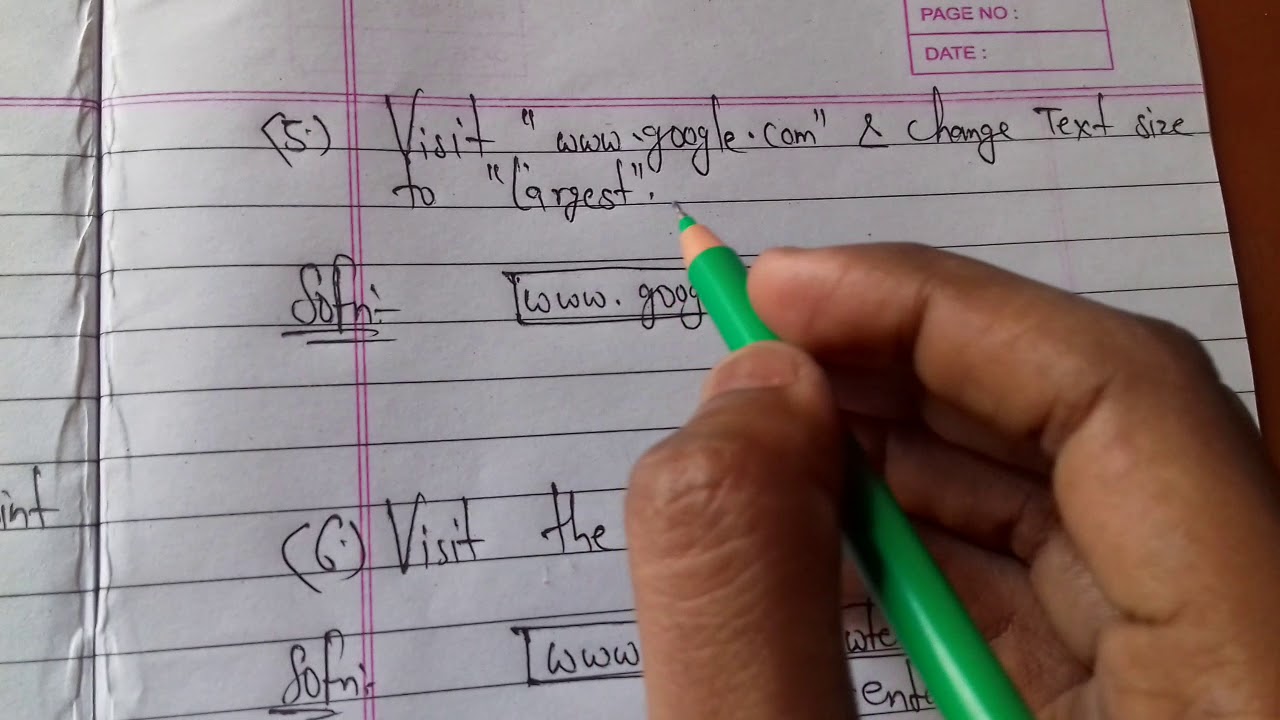 PAGE NO :
DATE :
(5.) Visit "www.google.com" & Change Text size
to "Largest".
Sol^n:- www. goog
int
(6.) Visit the
Sol^n:- www
ente